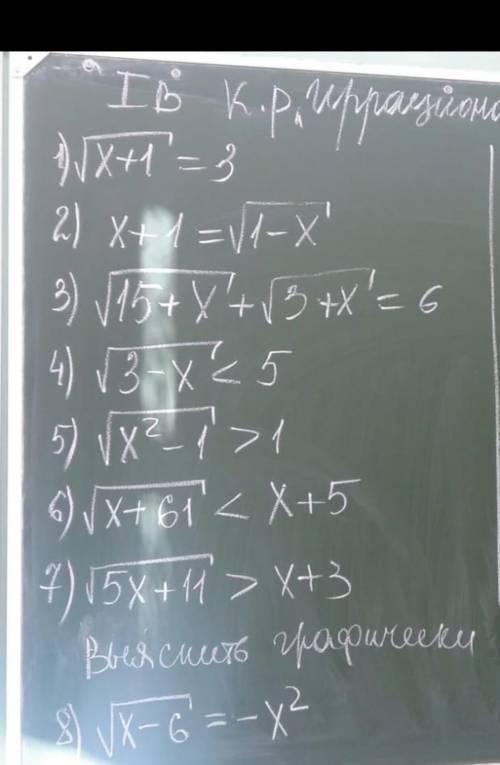 I В К.р. Иррацион
1) √(x+1) = 3
2) x+1 = √(1-x)
3) √(15+x) + √(3+x) = 6
4) √(3-x) < 5
5) √(x²-1) > 1
6) √(x+61) < x+5
7) √(5x+11) > x+3
Выяснить графически
8) √(x-6) = -x²